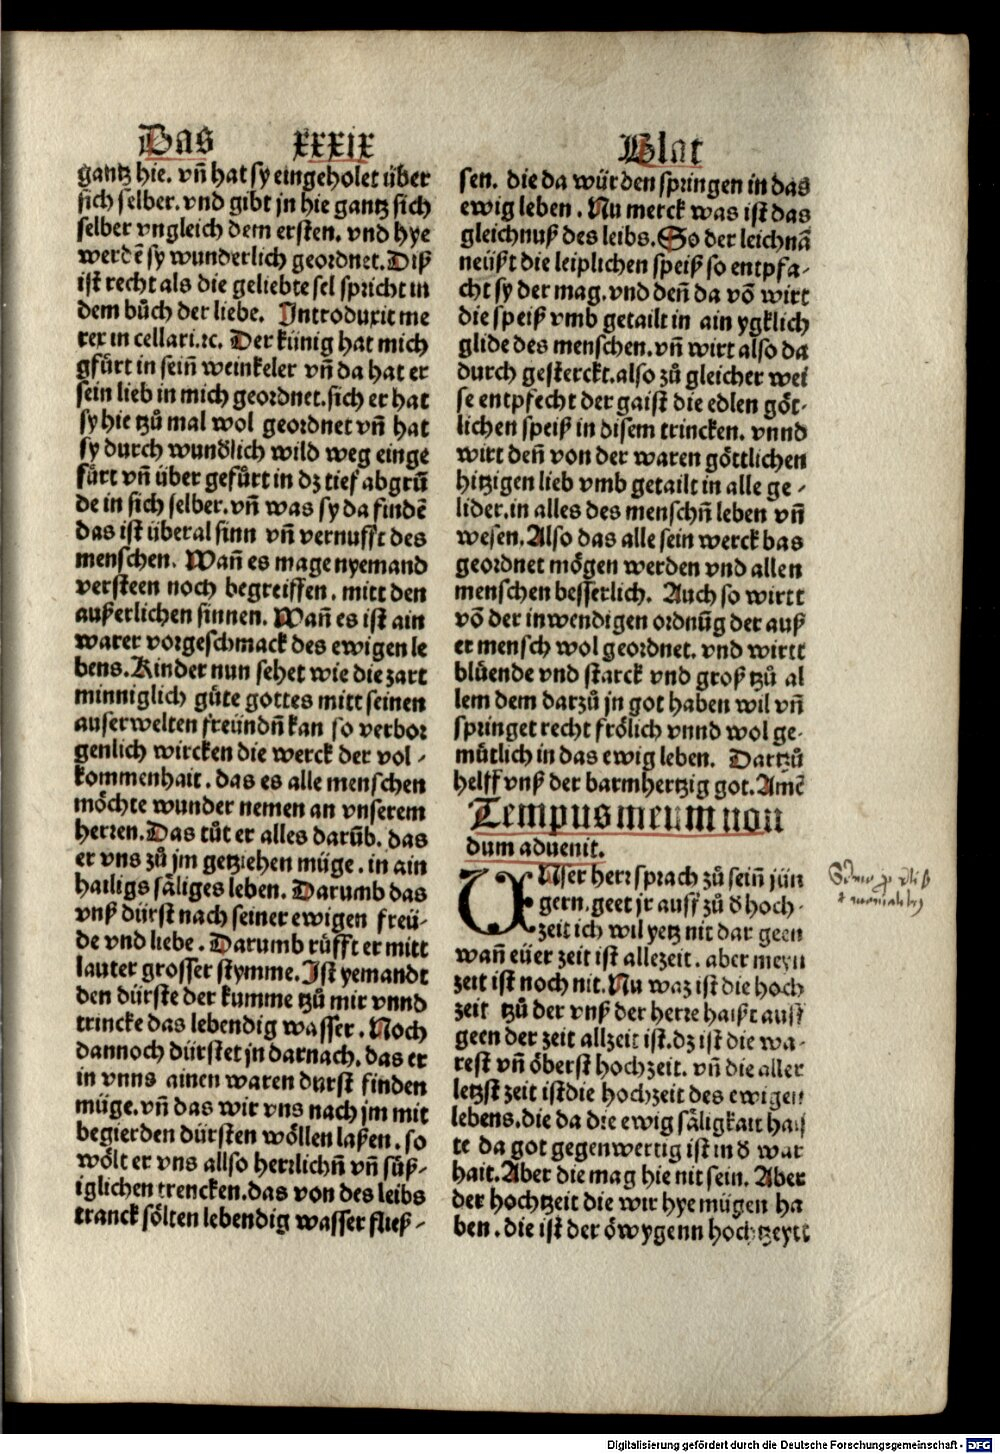 Das xxxix Blat
gantz hie. vn̄ hat sy eingeholet über
sich selber. vnd gibt jn hie gantz sich
selber vngleich dem ersten. vnd hye
werdē sy wunderlich geordnet. Diß
ist recht als die geliebte sel spricht in
dem bůch der liebe. Introduxit me
rex in cellari. ⁊c. Der künig hat mich
gfůrt in sein̄ weinkeler vn̄ da hat er
sein lieb in mich geordnet. sich er hat
sy hie tzů mal wol geordnet vn̄ hat
sy durch wundͤlich wild weg einge
fůrt vn̄ über gefůrt in dz tief abgrū
de in sich selber. vn̄ was sy da findē
das ist überal sinn vn̄ vernufft des
menschen. Wan̄ es mage nyemand
versteen noch begreiffen. mitt den
außerlichen sinnen. Wan̄ es ist ain
warer vorgeschmack des ewigen le
bens. Kinder nun sehet wie die zart
minniglich gůte gottes mitt seinen
auserwelten freündn̄ kan so verbor
genlich wircken die werck der vol-
kommenhait. das es alle menschen
möchte wunder nemen an vnserem
herren. Das tůt er alles darūb. das
er vns zů jm getziehen müge. in ain
hailigs säliges leben. Darumb das
vnß dürst nach seiner ewigen freü-
de vnd liebe. Darumb růfft er mitt
lauter grosser stymme. Ist yemandt
den dürste der kumme tzů mir vnnd
trincke das lebendig wasser. Noch
dannoch dürstet jn darnach. das er
in vnns ainen waren durst finden
müge. vn̄ das wir vns nach jm mit
begierden dürsten wöllen laßen. so
wölt er vns allso herrlichn̄ vn̄ süß-
iglichen trencken. das von des leibs
tranck sölten lebendig wasser fließ-
sen. die da würden springen in das
ewig leben. Nu merck was ist das
gleichnuß des leibs. So der leichnā
neüßt die leiplichen speiß so entpfa-
cht sy der mag. vnd den̄ da vō wirt
die speiß vmb getailt in ain ygklich
glide des menschen. vn̄ wirt also da
durch gesterckt. also zů gleicher wei
se entpfecht der gaist die edlen göt-
lichen speiß in disem trincken. vnnd
wirt den̄ von der waren göttlichen
hitzigen lieb vmb getailt in alle ge-
lider. in alles des menschn̄ leben vn̄
wesen. Also das alle sein werck bas
geordnet mögen werden vnd allen
menschen besserlich. Auch so wirtt
vō der inwendigen ordnūg der auß
er mensch wol geordnet. vnd wirtt
blüende vnd starck vnd groß tzů al
lem dem darzů jn got haben wil vn̄
springet recht frölich vnnd wol ge-
můtlich in das ewig leben. Dartzů
helff vnß der barmhertzig got. Amē
Tempus meum non
dum aduenit.
VNser herr sprach zů sein̄ jün
gern. geet jr auff zů d hoch-
zeit ich wil yetz nit dar geen
wan̄ eüer zeit ist allezeit. aber meyn
zeit ist noch nit. Nu waz ist die hoch
zeit tzů der vnß der herre haißt auff
geen der zeit allzeit ist. dz ist die wa-
rest vn̄ öberst hochzeit. vn̄ die aller
letzst zeit ist die hochzeit des ewigen
lebens. die da die ewig säligkait haiß
te da got gegenwertig ist in d war
hait. Aber die mag hie nit sein. Aber
der hochtzeit die wir hye mügen ha
ben. die ist der öwygenn hochtzeytt
Digitalisierung gefördert durch die Deutsche Forschungsgemeinschaft - DFG